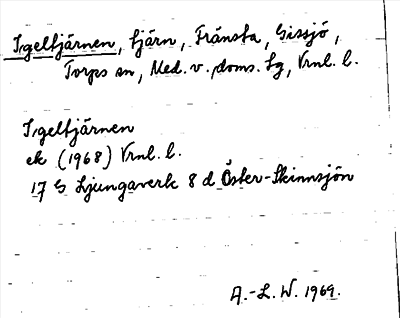 Igeltjärnen, tjärn, Fränsta, Gissjö,
Torps sn, Med. v. doms. tg, Vrnl. l.
Igeltjärnen
ek (1968) Vrnl. l.
17 G Ljungaverk 8 d Öster-Skinnsjön
A.-L. W. 1969.